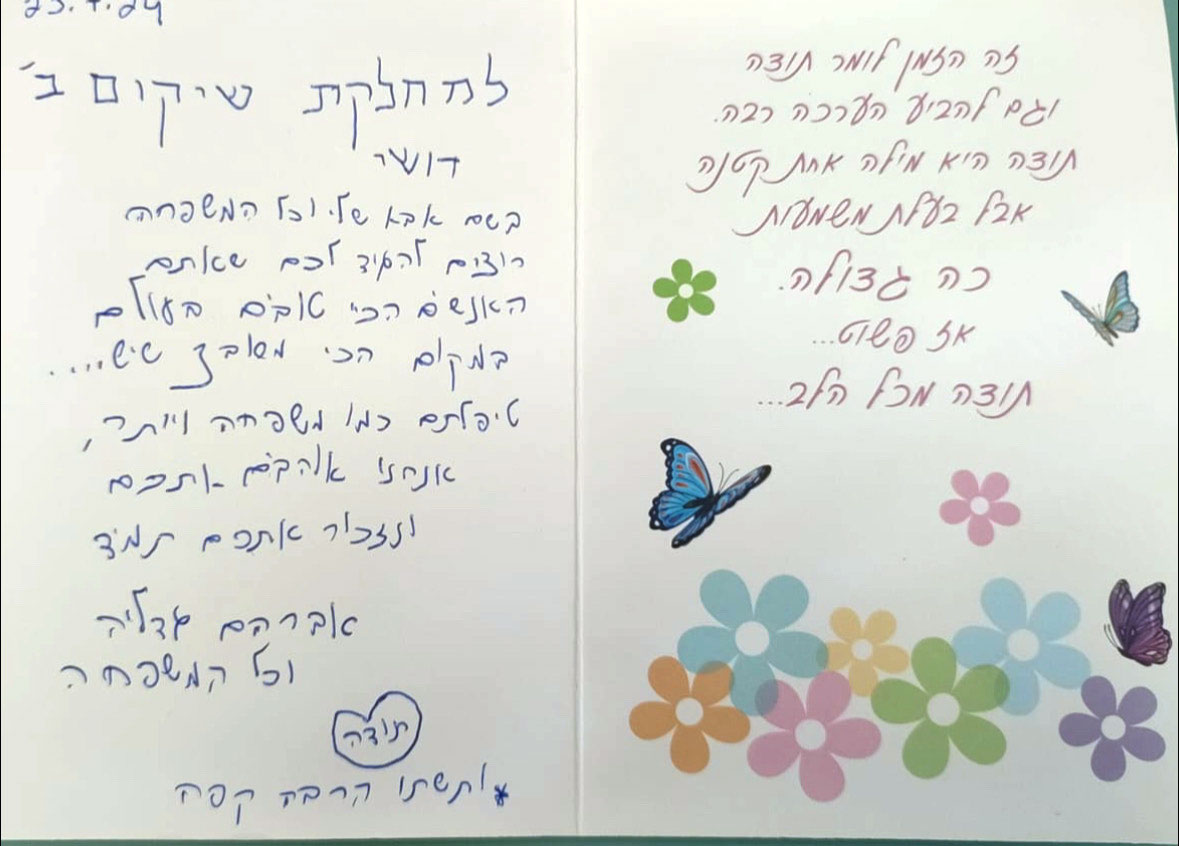 23.7.24
למחלקת שיקום ב'
דושי
בשם אבא שלי וכל המשפחה
רוצים להגיד לכם שאתם
האנשים הכי טובים בעולם
במקום הכי מאובק שיש....
טיפלתם כמו משפחה ויותר,
אנחנו אוהבים אתכם
ונזכור אתכם תמיד
אברהם גדליה
וכל המשפחה
תודה
* ותשתו הרבה קפה
זה הזמן לומר תודה
וגם להביע הערכה רבה.
תודה היא מילה אחת קטנה
אבל בעלת משמעות
כה גדולה.
אז פשוט...
תודה מכל הלב...